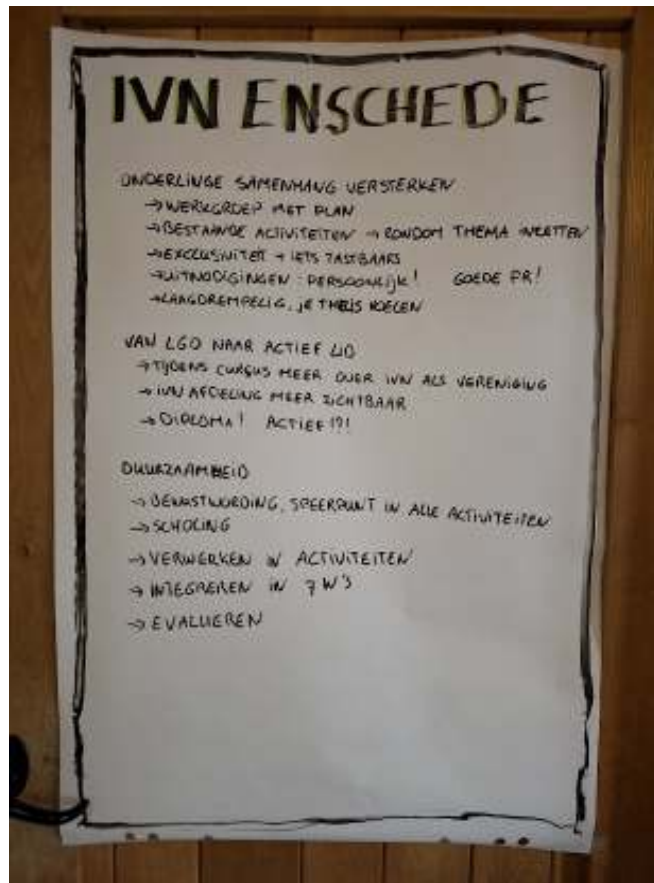 IVN ENSCHEDE
ONDERLINGE SAMENHANG VERSTERKEN
→ WERKGROEP MET PLAN
→ BESTAANDE ACTIVITEITEN → RONDOM THEMA INZETTEN
→ EXCLUSIVITEIT + IETS TASTBAARS
→ UITNODIGINGEN: PERSOONLIJK! GOEDE PR!
→ LAAGDREMPELIG, JE THUIS VOELEN
VAN LGO NAAR ACTIEF LID
→ TIJDENS CURSUS MEER OVER IVN ALS VERENIGING
→ IVN AFDELING MEER ZICHTBAAR
→ DIPLOMA! ACTIEF!?!
DUURZAAMHEID
→ BEWUSTWORDING, SPEERPUNT IN ALLE ACTIVITEITEN
→ SCHOLING
→ VERWERKEN IN ACTIVITEITEN
→ INTEGREREN IN 7 W'S
→ EVALUEREN